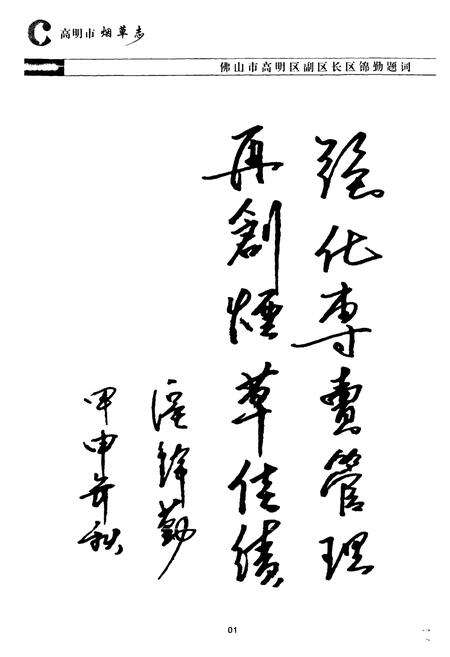 高明市 烟草志
佛山市高明区副区长区锦勤题词
強化專賣管理
再創煙草佳績
區錦勤
甲申年秋
01